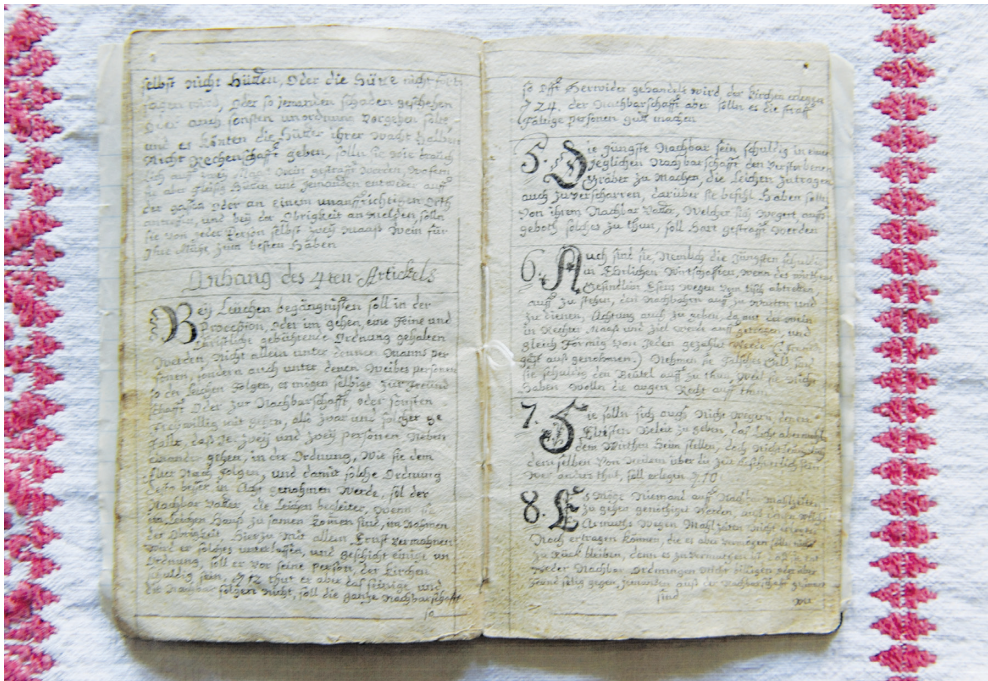 selbst nicht Hütten, Oder die Hütte nicht
sagen wird, oder so jemanden schaden geschehen
Oder auch sonsten unordnung Vorgehen solte
und es könten die Hütter ihrer Wacht halben
Nicht Rechenschafft geben, sollen sie wie
gestrafft werden,
sie aber fleißig Hütten und jemanden entweder auff
der gassen oder an einem unaufrichtigen Orth
und bey der Obrigkeit anmelden solln
sie von jeder Person selbst zwey Maaß Wein für
Ihre Mühe zum besten Haben
Anhang des 4ten Artickels
Bey Leuchen begängnißen soll in der
Procession, oder im gehen, eine Feine und
Christlich gebührende Ordnung gehalten
Werden, Nicht allein unter denen Manns Per
sonen, sondern auch unter denen Weibes personen
so den Leichen Folgen, es mögen selbige zur Freund
schafft Oder zur Nachbarschafft oder sonsten
Freywillig mit gehen, als zwar und solcher ge
stalt, daß je zwey und zwey personen Neben
einander gehen, in der Ordnung, wie sie dem
alter Nach folgen, und damit solche Ordnung
desto beßer in Acht genohmen Werde, sol der
Nachbar Vatter die Leichen begleiter, wenn sie
im Leichen Hauß zu samen komen sind, im Nahmen
der Obrigkeit Hierzu mit allem Ernst Vermahnen
wird er solches unterlaßen, und geschicht einige un
Ordnung, soll er vor seine Person der Kirchen
schuldig sein, 12 thut er aber das seinige und
die Nachbar folgen nicht, soll die gantze Nachbarschafft
so
so offt Herwider gehandelt wird der Kirchen erlegen
24. der Nachbarschafft aber sollen es die straff
fältige personen gutt machen
5. Die jüngste Nachbar sein schuldig in einer
jeglichen Nachbarschafft den Verstorbenen
Gräber zu Machen, die Leichen zutragen
auch zuverscharren, darüber sie befehl Haben solln
Von ihrem Nachbar Vatter, Welcher sich Wegert, auffs
geboth solches zu thun, soll Hart gestrafft werden
6. Auch sind sie, Nemlich die Jüngsten schuldig
in Ehrlichen Wirtschafften, wenn des
Gesindlein Eßen wegen Von tisch abtretten
auff zu stehen, den Nachbahren auff zu Warten und
zu dienen, Achtung auch zu geben, daß der wein
in Rechter Maaß und Ziel werde auff getragen, und
gleich Förmig Von Jeden gezahlet Werde
gäst auß genohmen) Nehmen sie Falsches Geld
sie schuldig den Beutel auff zu thun, Weil sie Nicht
Haben Wolln die augen Recht auff thun
7. Sie solln sich auch Nicht Wegern,
Gleit zu geben,
dem Wirthen Heim stellen,
demselben Von Neuem über die Zeit
Wer anders thut, soll erlegen 10
8. Es Möge Niemand auff Nachbar mahlzeiten
zu gehen genöthiget Werden,
Armuths Wegen Mahlzeiten nicht
Noch ertragen können, die es aber vermögen
zu Rück bleiben, denn es zu vermuthen ist
Weder Nachbar Ordnungen
Feind selig gegen jemanden auß der Nachbarschafft
sind